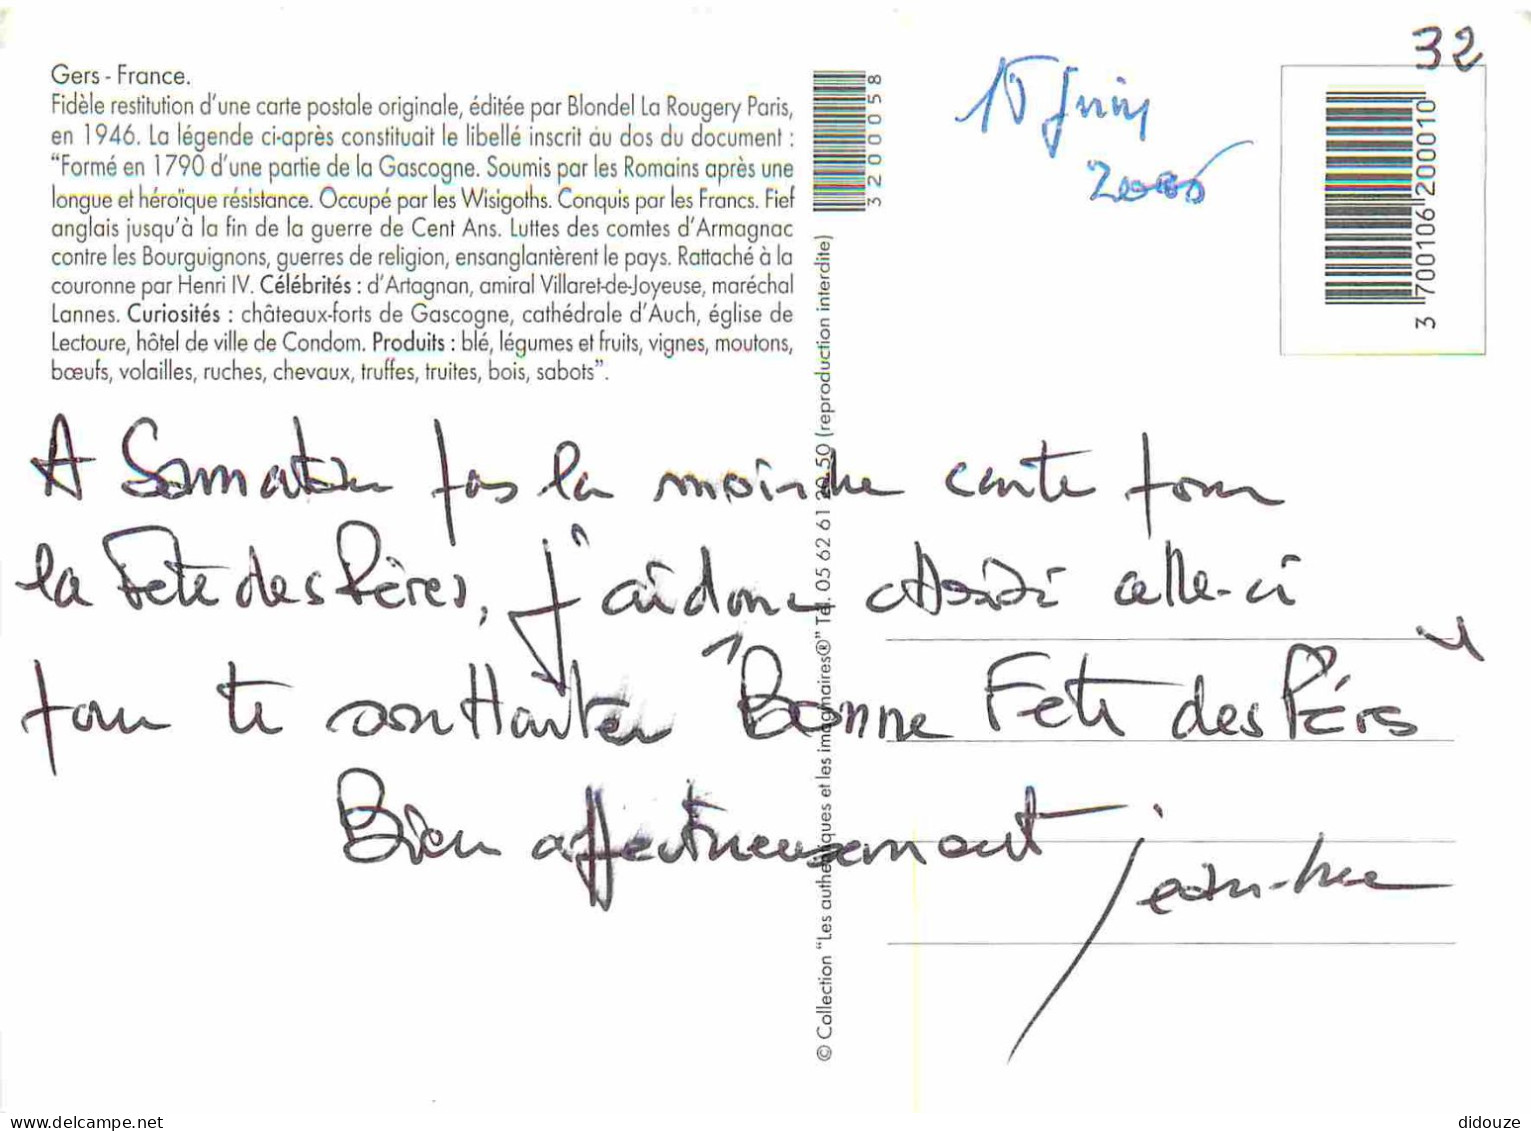 32
Gers - France.
Fidèle restitution d'une carte postale originale, éditée par Blondel La Rougery Paris,
en 1946. La légende ci-après constituait le libellé inscrit au dos du document :
"Formé en 1790 d'une partie de la Gascogne. Soumis par les Romains après une
longue et héroïque résistance. Occupé par les Wisigoths. Conquis par les Francs. Fief
anglais jusqu'à la fin de la guerre de Cent Ans. Luttes des comtes d'Armagnac
contre les Bourguignons, guerres de religion, ensanglantèrent le pays. Rattaché à la
couronne par Henri IV. Célébrités : d'Artagnan, amiral Villaret-de-Joyeuse, maréchal
Lannes. Curiosités : châteaux-forts de Gascogne, cathédrale d'Auch, église de
Lectoure, hôtel de ville de Condom. Produits : blé, légumes et fruits, vignes, moutons,
bœufs, volailles, ruches, chevaux, truffes, truites, bois, sabots".
3200058
Juin
3 700106 200010
A Samatan pas la moindre carte pour
la Fête des Pères, j'ai donc choisi celle-ci
pour te souhaiter "Bonne Fête des Pères"
Bien affectueusement
Jean-Luc
© Collection "Les authentiques et les imaginaires®" Tél. 05 62 61 20 50 (reproduction interdite)
www.delcampe.net
didouze